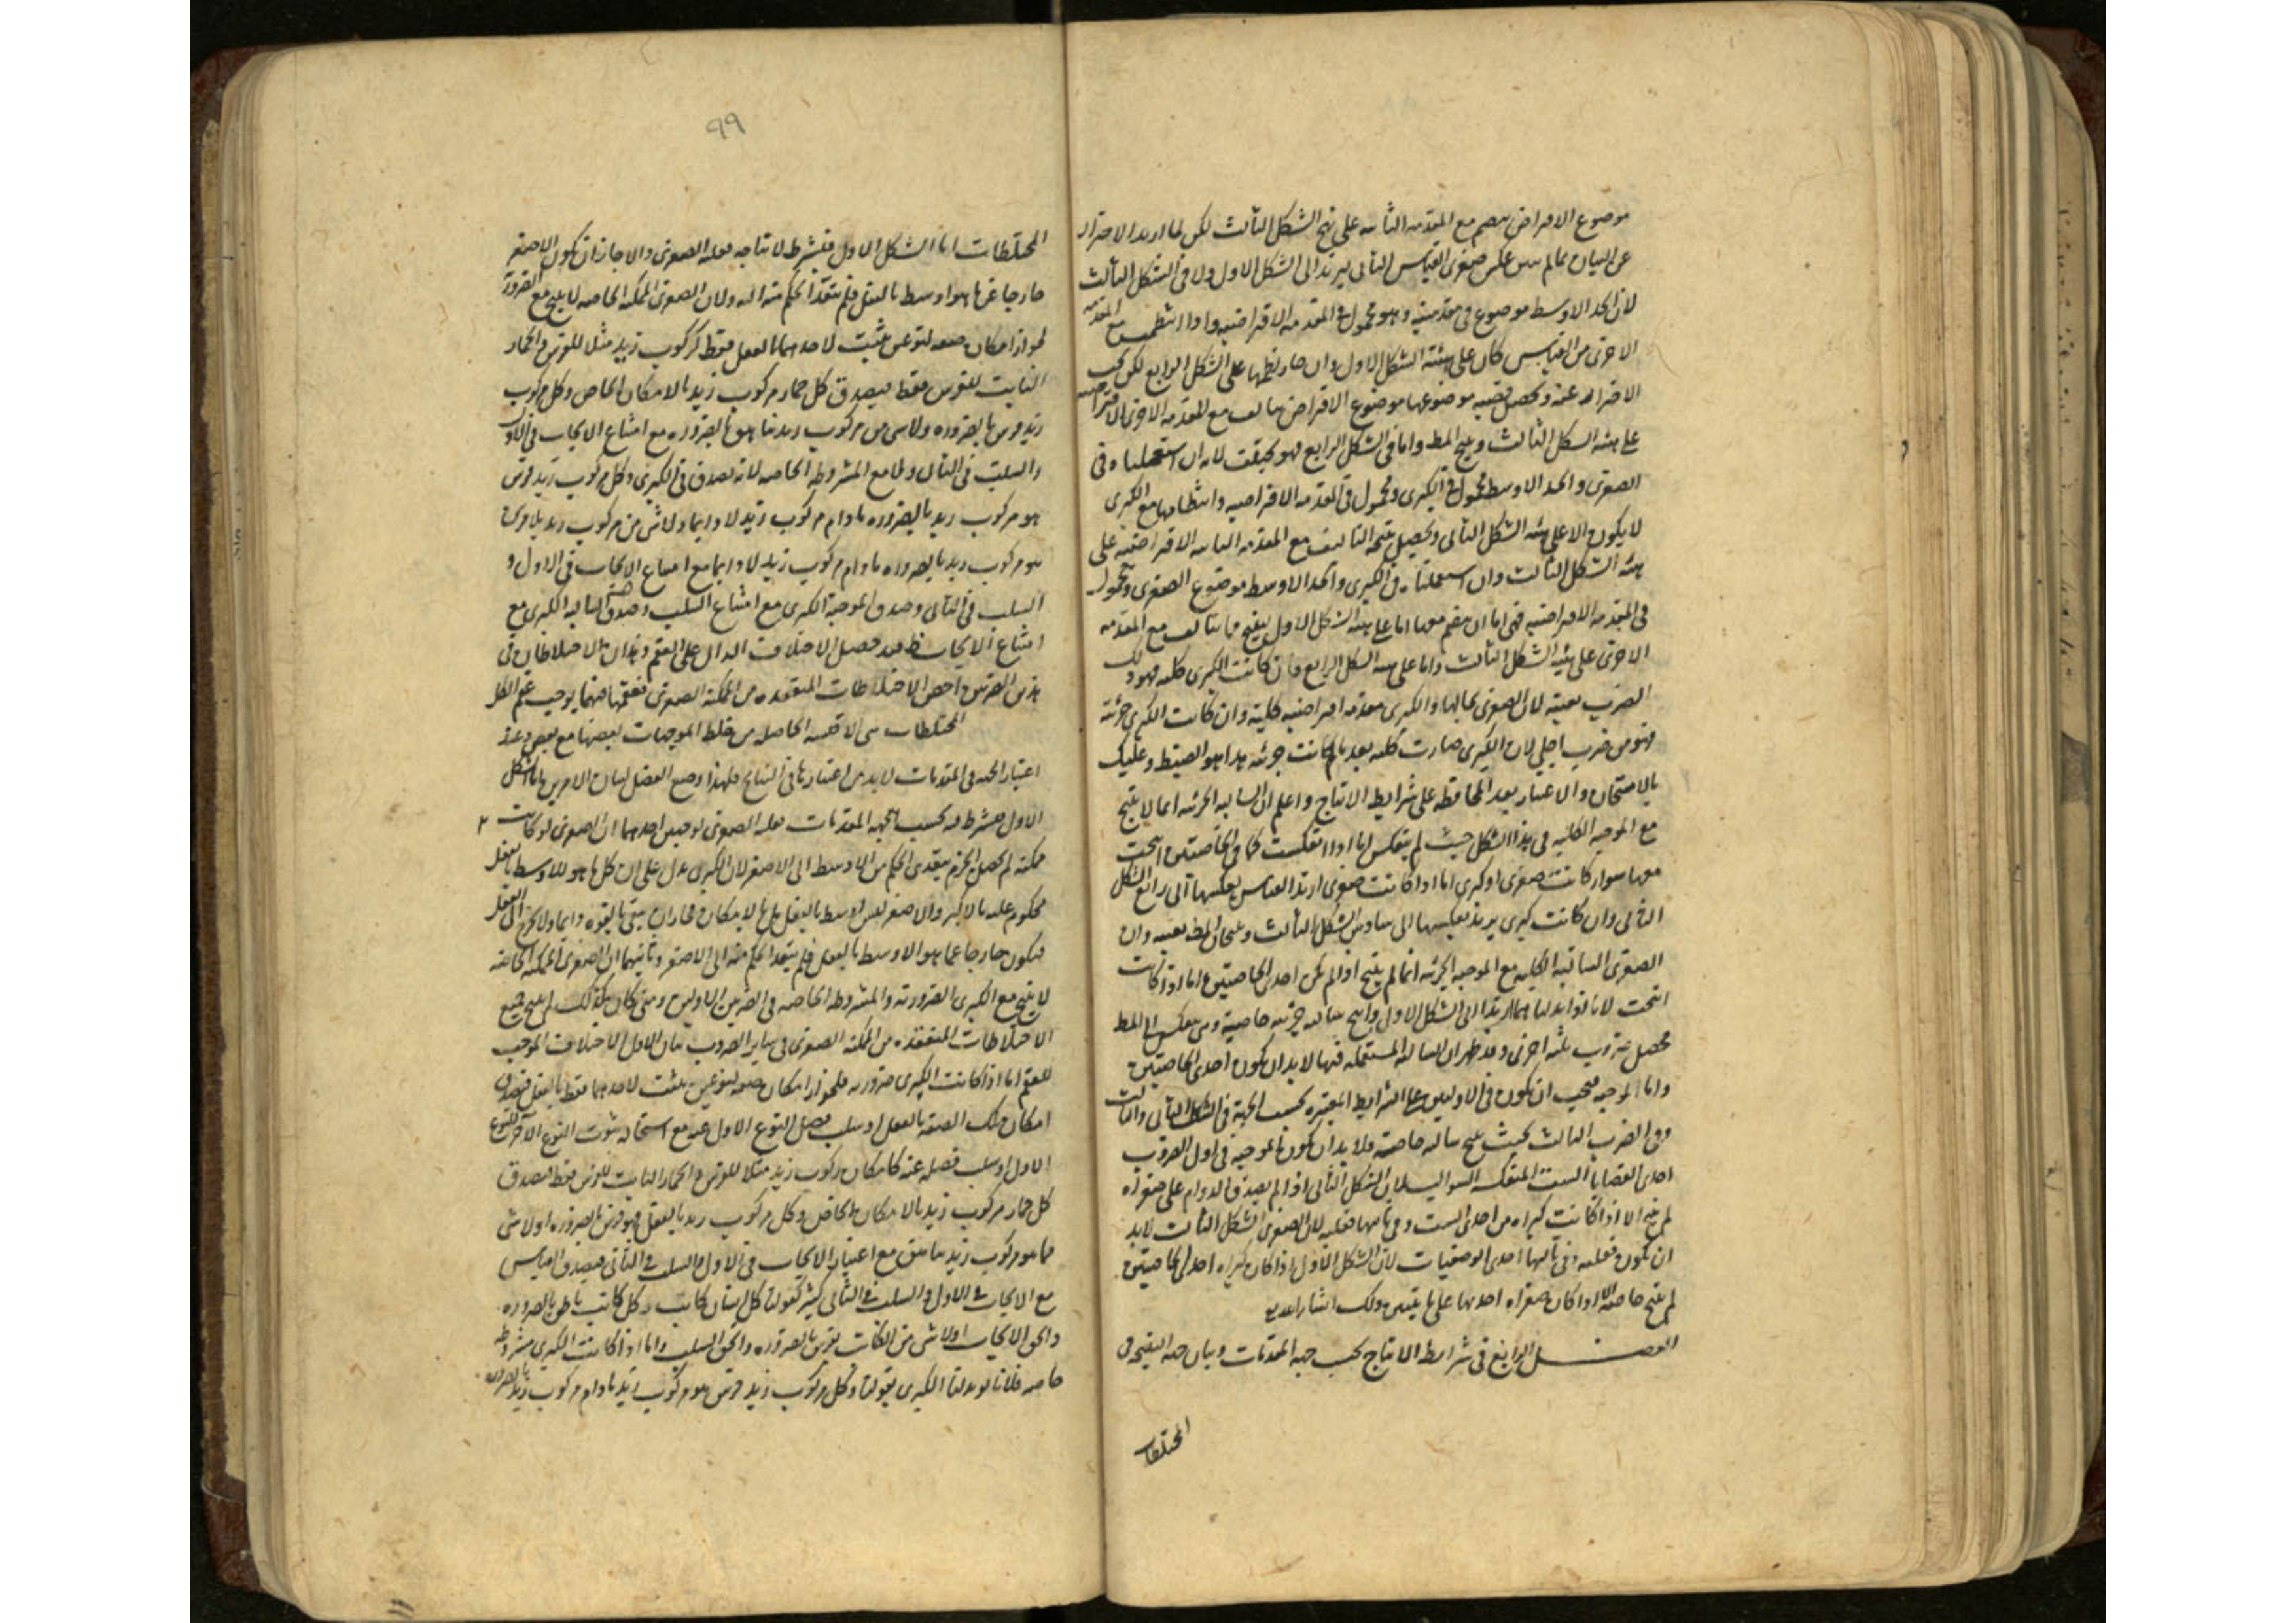 موضوع الافراض ينضم مع المقدمة الثانية على نهج الشكل الثالث لكن لما اريد الاحتراز
عن البيان بمالم يبين عكس صغرى القياس الثاني ليرتد الى الشكل الاول ولا في الشكل الثالث
لان الحد الاوسط موضوع في مقدمتيه وهو محمول في المقدمة الافتراضية واذا انتظمت مع المقدمة
الاخرى من القياس كان على هيئة الشكل الاول وان جاز نظمها على الشكل الرابع لكن يجب
الاحتراز عنه وتحصل قضية موضوعها موضوع الافتراض يتالف مع المقدمة الاخرى الافتراضية
على هيئة الشكل الثالث وينتج المط واما في الشكل الرابع فهو كيفت لانه ان استعملناه في
الصغرى والحد الاوسط محمول في الكبرى ومحمول في المقدمة الافتراضية وانتظامها مع الكبرى
لا يكون الا على هيئة الشكل الثاني وتحصيل نتيجة التاليف مع المقدمة الثانية الافتراضية على
هيئة الشكل الثالث وان استعملناه في الكبرى والحد الاوسط موضوع الصغرى ومحمول
في المقدمة الافتراضية فهي اما ان ينضم معها اما على هيئة الشكل الاول ينتج ما يتالف مع المقدمة
الاخرى على هيئة الشكل الثالث واما على هيئة الشكل الرابع فان كانت الكبرى كلية فهو ذلك
الضرب بعينه لان الصغرى بحالها والكبرى مقدمة افتراضية كلية وان كانت الكبرى جزئية
فهو من ضرب اجلى لان الكبرى صارت كلية بعد ما كانت جزئية هذا هو الضبط وعليك
بالامتحان والاعتبار بعد المحافظة على شرايط الانتاج واعلم ان السالبة الجزئية انما لا ينتج
مع الموجبة الكلية في هذا الشكل حيث لم ينعكس اما اذا انعكست كما في الخاصتين انتجت
معها سواء كانت صغرى او كبرى اما اذا كانت صغرى ارتد القياس بعكسها الى رابع الشكل
الثاني وان كانت كبرى يرتد بعكسها الى سادس الشكل الثالث وينتجان المط بعينه وان
الصغرى السالبة الكلية مع الموجبة الجزئية انما لم ينتج اذا لم يكن احدى الخاصتين اما اذا كانت
انتجت لانا اذا بدلناهما ارتد الى الشكل الاول وانتج سالبة جزئية خاصية وهي ينعكس الى المط
فحصل ضروب ثلثة اخرى وقد ظهر ان السالبة المستعملة فيها لا بد ان يكون احدى الخاصتين
واما الموجبة فيجب ان يكون في الاوليين على الشرايط المعتبرة بحسب الجهة في الشكل الثاني والثالث
وفي الضرب الثالث بحيث ينتج سالبة خاصة فلا بد ان يكون الموجبة في اول الضروب
احدى القضايا الست المنعكسة السوالب لان الشكل الثاني اذا لم يصدق الدوام على صغراه
لم ينتج الا اذا كانت كبراه من احدى الست وفي ثانيها فعلية لان الصغرى الشكل الثالث لا بد
ان يكون فعلية وفي ثالثها احدى الوصفيات لان الشكل الاول اذا كان كبراه احدى الخاصتين
لم ينتج خاصة الا اذا كان صغراه احديها على ما يتبين ذلك انشاء الله تع
الفصل الرابع في شرايط الانتاج بحسب جهة المقدمات وبيان جهة النتيجة في
المختلطات
٩٩
المختلطات اما الشكل الاول فيشرط لانتاجه فعلية الصغرى والا جاز ان يكون الاصغر
خارجا عن ما هو اوسط بالفعل فلم يتعد الحكم منه اليه ولان الصغرى الممكنة الخاصة لا ينتج مع الضرورية
لجواز امكان صفة لنوعين يثبت لاحدهما بالفعل فقط كركوب زيد مثلا للفرس والحمار
الثابت للفرس فقط فيصدق كل حمار مركوب زيد بالامكان الخاص وكل مركوب
زيد فرس بالضرورة ولا شي من مركوب زيد بناهق بالضرورة مع امتناع الايجاب في الاول
والسلب في الثاني ولا مع المشروطة الخاصة لانه يصدق في الكبرى وكل مركوب زيد فرس
هو مركوب زيد بالضرورة مادام مركوب زيد لا دايما ولا شي من مركوب زيد بلا فرس
هو مركوب زيد بالضرورة مادام مركوب زيد لا دايما مع امتناع الايجاب في الاول و
السلب في الثاني وصدق الموجبة الكبرى مع امتناع السلب وصدق السالبة الكبرى مع
امتناع الايجاب ظ فقد حصل الاختلاف الدال على العقم وهذان الاختلاطان في
هذين الضربين اخص الاختلاطات المنعقدة من الممكنة الصغرى فعقمها فيهما يوجب عقم الكل
المختلطات هي الاقيسة الحاصلة من خلط الموجهات بعضها مع بعض وعند
اعتبار الجهة في المقدمات لا بد من اعتبارها في النتايج فلهذا وضع الفصل لبيان الامرين اما الشكل
الاول فيشرط فيه بحسب الجهة المقدمات فعلية الصغرى لوجهين احدهما ان الصغرى لو كانت
ممكنة لم يحصل الجزم بتعدي الحكم من الاوسط الى الاصغر لان الكبرى يدل على ان كل ما هو للاوسط بالفعل
محكوم عليه بالاكبر والاصغر ليس اوسط بالفعل بل بالامكان فجاز ان يبقى بالقوة دايما ولا يخرج الى الفعل
فيكون خارجا عما هو الاوسط بالفعل فلم يتعد الحكم منه الى الاصغر وثانيهما ان الصغرى الممكنة الخاصة
لا ينتج مع الكبرى الضرورية والمشروطة الخاصة في الضربين الاولين ومتى كان كذلك لم ينتج جميع
الاختلاطات المنعقدة من الممكنة الصغرى في ساير الضروب بيان الاول الاختلاف الموجب
للعقم اما اذا كانت الكبرى ضرورية فلجواز امكان صفة لنوعين يثبت لاحدهما فقط بالفعل فيصدق
امكان تلك الصفة بالفعل او سلب فصل النوع الاول عنه مع استحالة ثبوت النوع الاخر للنوع
الاول او سلب فصله عنه كامكان ركوب زيد مثلا للفرس والحمار الثابت للفرس فقط فيصدق
كل حمار مركوب زيد بالامكان الخاص وكل مركوب زيد بالفعل فهو فرس بالضرورة او لا شي
مما هو مركوب زيد بناهق مع اعتبار الايجاب في الاول والسلب في الثاني فيصدق القياس
مع الايجاب في الاول والسلب في الثاني كثير كقولنا كل انسان كاتب وكل كاتب ناطق بالضرورة
والحق الايجاب او لا شي من الكاتب بفرس بالضرورة والحق السلب واما اذا كانت الكبرى مشروطة
خاصة فلانا لو بدلنا الكبرى بقولنا وكل مركوب زيد فرس هو مركوب زيد مادام مركوب زيد بالضرورة